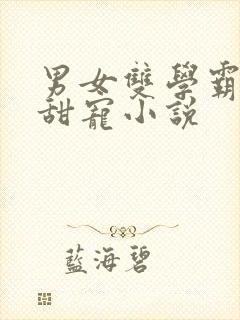 男女雙學霸
甜寵小說
藍海碧